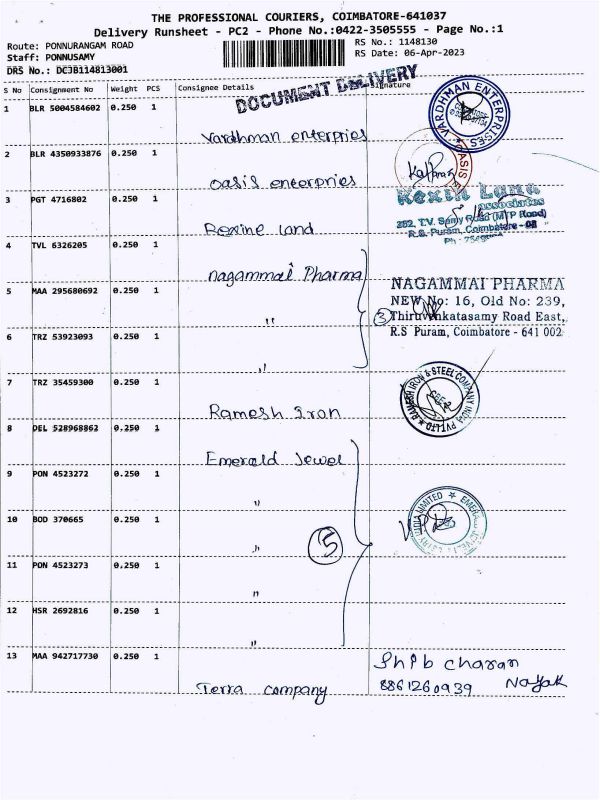 THE PROFESSIONAL COURIERS, COIMBATORE-641037
Delivery Runsheet - PC2 - Phone No.:0422-3505555 - Page No.:1
Route: PONNURANGAM ROAD RS No.: 1148130
Staff: PONNUSAMY RS Date: 06-Apr-2023
DRS No.: DCJB114813001
DOCUMENT DELIVERY
S No Consignment No Weight PCS Consignee Details Signature
1 BLR 5004584602 0.250 1
Vardhman enterpries
VARDHMAN ENTERPRISES
2 BLR 4350933876 0.250 1
Oasis enterpries
OASIS
3 PGT 4716802 0.250 1
Rexine land
Rexin Land
associates
282, T.V. Samy Road (MTP Road)
R.S. Puram, Coimbatore - 02
4 TVL 6326205 0.250 1
nagammai Pharma
5 MAA 295680692 0.250 1
"
3
NAGAMMAI PHARMA
NEW No: 16, Old No: 239,
Thiruvenkatasamy Road East,
R.S Puram, Coimbatore - 641 002
6 TRZ 53923093 0.250 1
"
7 TRZ 35459300 0.250 1
Ramesh Iron
RAMESH IRON & STEEL COMPANY INDIA PVT LTD
8 DEL 528968862 0.250 1
Emerald Jewel
9 PON 4523272 0.250 1
"
10 BOD 370665 0.250 1
"
5
11 PON 4523273 0.250 1
"
12 HSR 2692816 0.250 1
"
13 MAA 942717730 0.250 1
Terra company
Shib charan
Nayak
8861260939